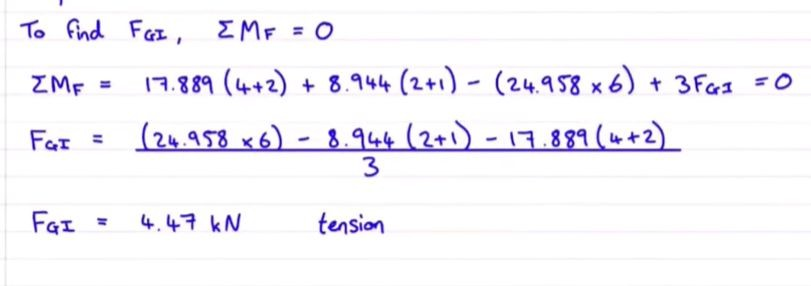 To find FGI, ΣMF = 0
ΣMF = 17.889 (4+2) + 8.944 (2+1) - (24.958 × 6) + 3FGI = 0
FGI = (24.958 × 6) - 8.944 (2+1) - 17.889 (4+2)
3
FGI = 4.47 kN tension